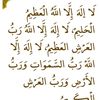 لَا إِلَهَ إِلَّا اللهُ الْعَظِيمُ
الْحَلِيمُ لَا إِلَهَ إِلَّا اللهُ رَبُّ
الْعَرْشِ الْعَظِيمِ لَا إِلَهَ إِلَّا
اللهُ رَبُّ السَّمَوَاتِ وَرَبُّ
الْأَرْضِ وَرَبُّ الْعَرْشِ